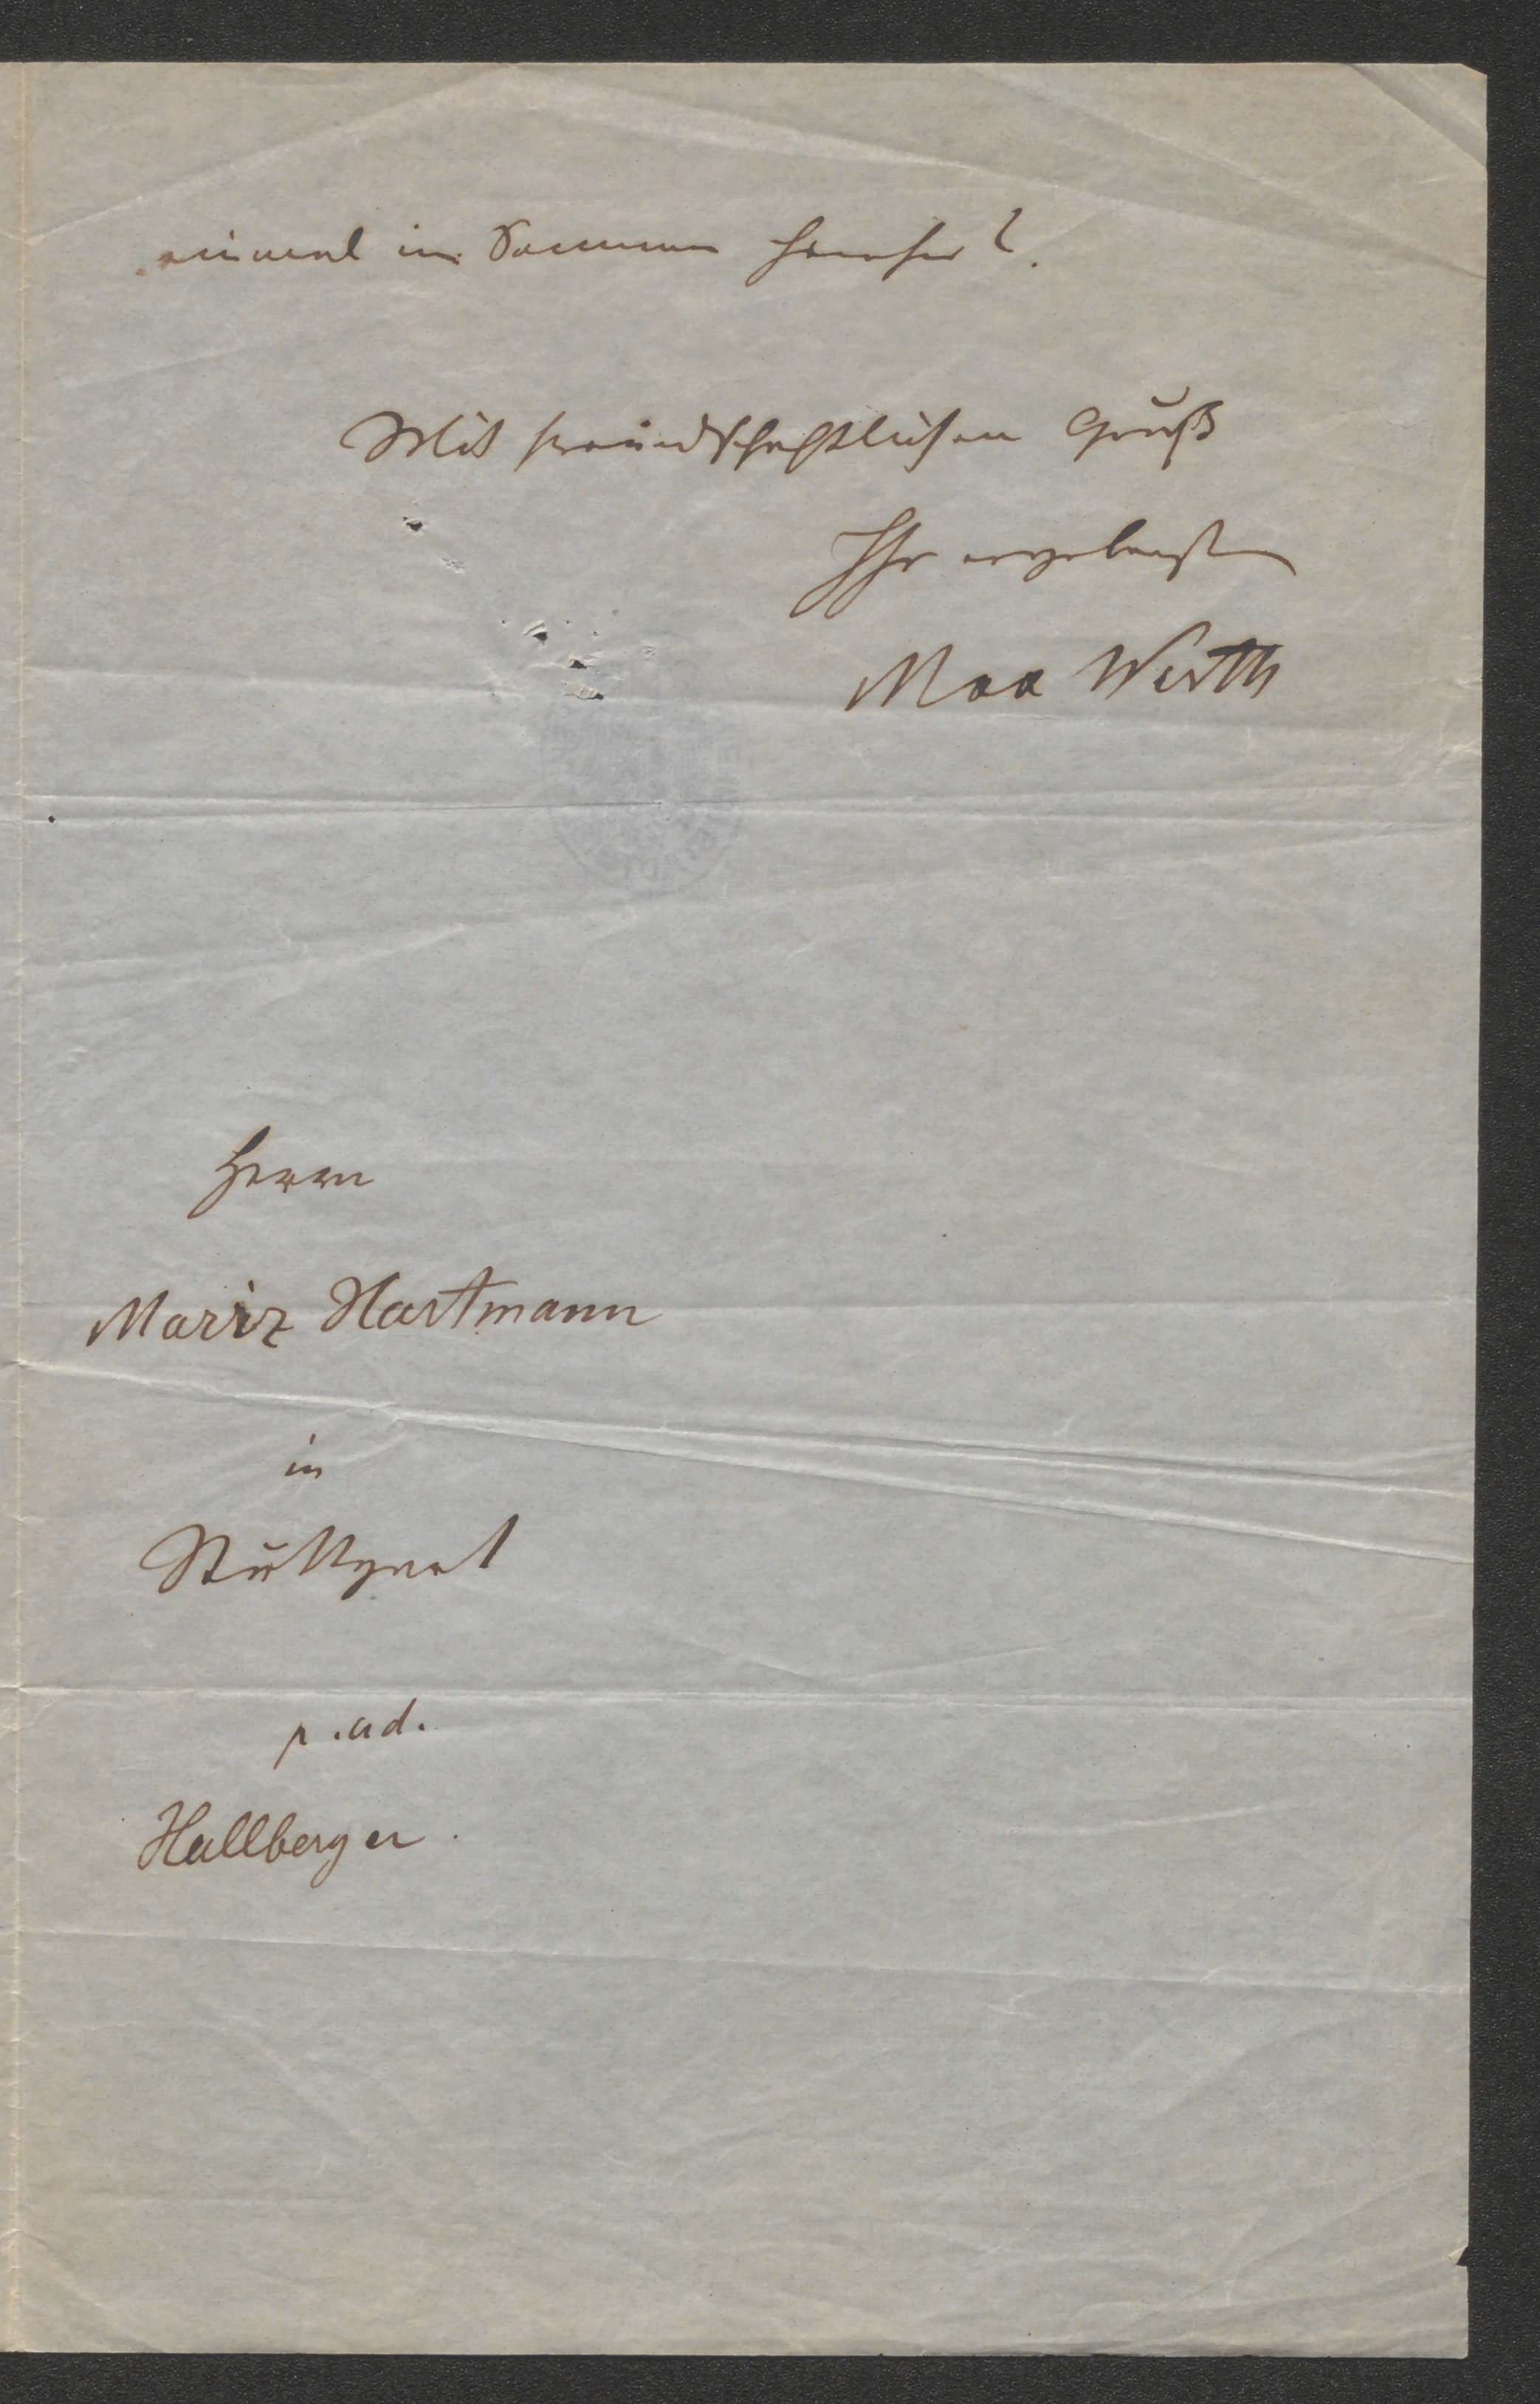 einmal im Sommer hierher?
Mit freundschaftlichem Gruß
Ihr ergebenster
Max Wirth
Herrn
Moriz Hartmann
in
Stuttgart
p. ad.
Hallberger.